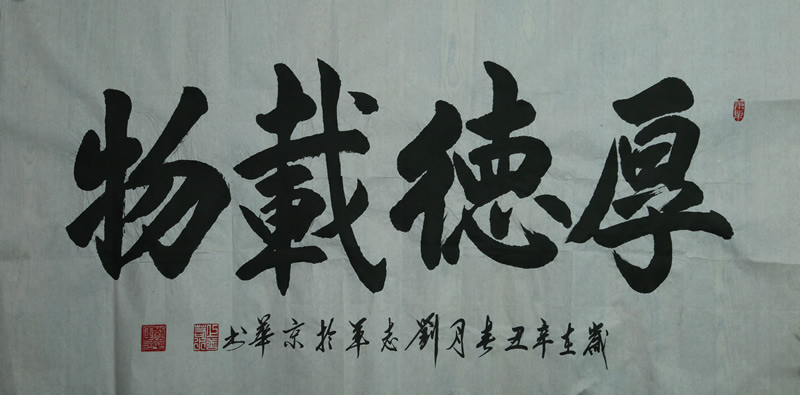 厚德載物
歲在辛丑春月劉志军於京華书